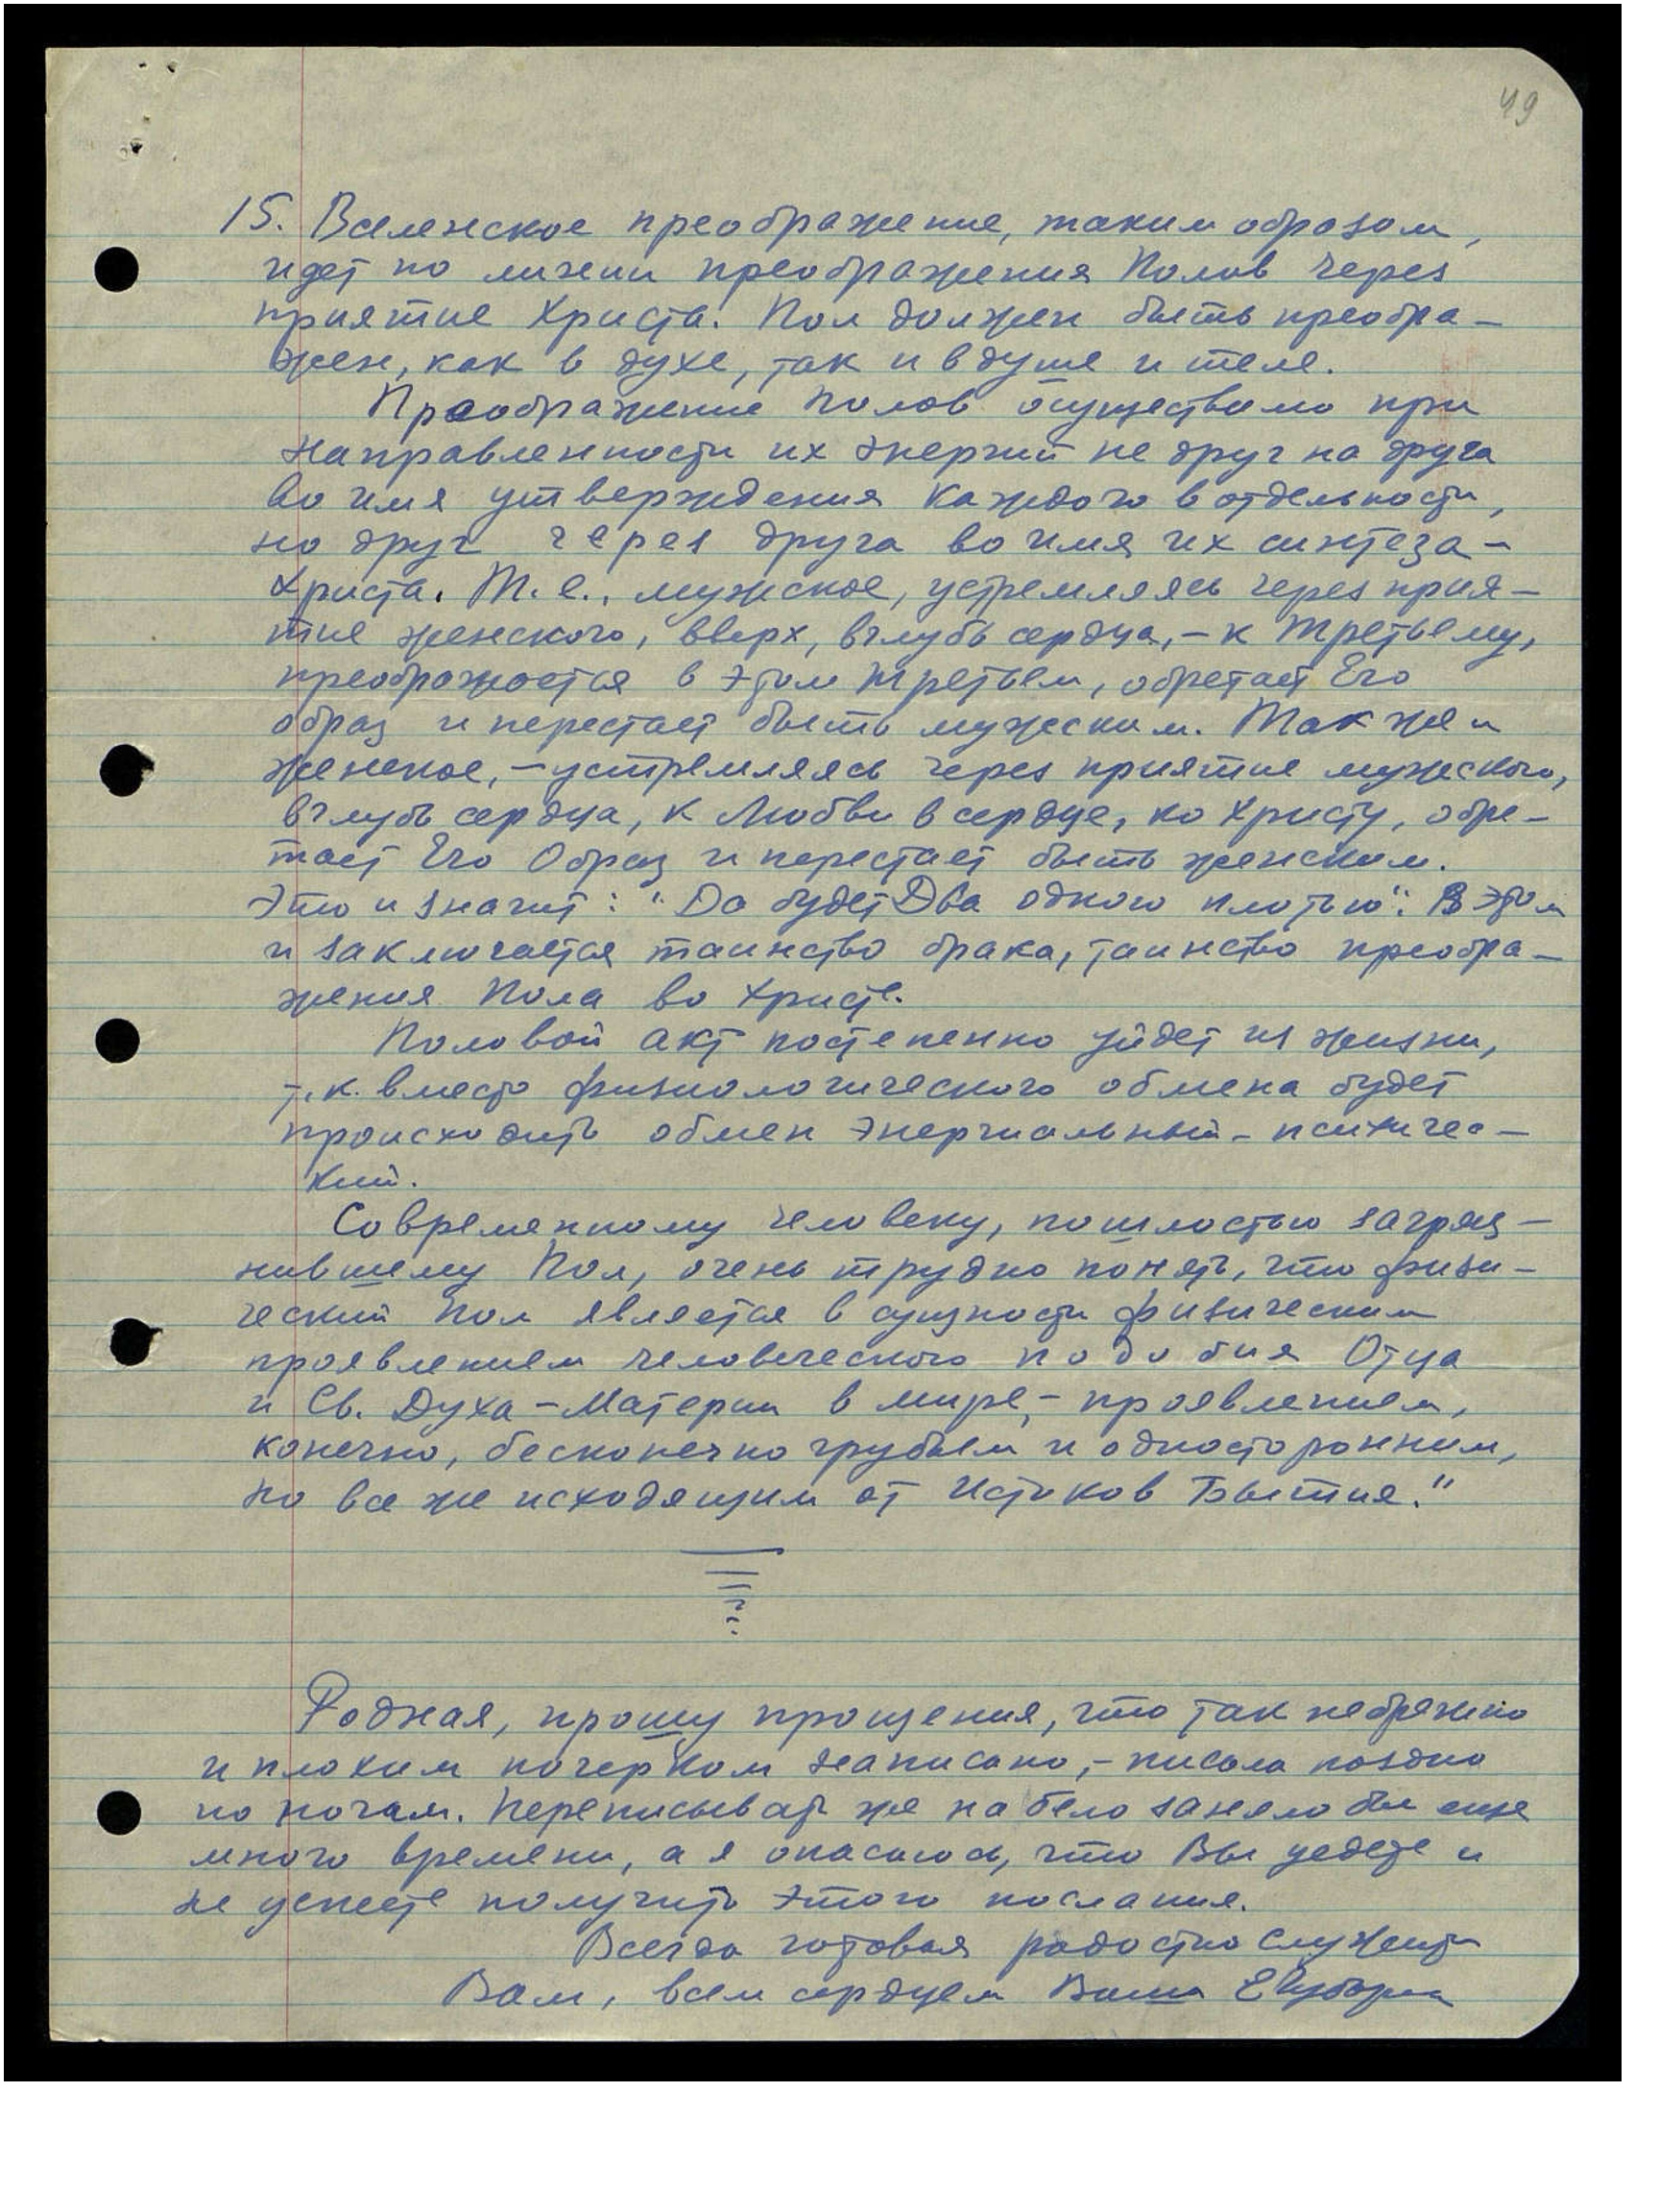 49
15. Вселенское преображение, таким образом,
идет по линии преображения Полов через
приятие Христа. Пол должен быть преобра-
жен, как в духе, так и в душе и теле.
Преображение Полов осуществимо при
направленности их энергий не друг на друга
во имя утверждения каждого в отдельности,
но друг через друга во имя их синтеза-
Христа. Т.е., мужское, устремляясь через прия-
тие женского, вверх, вглубь сердца, - к Третьему,
преображается в этом Третьем, обретает Его
образ и перестает быть мужским. Так же и
женское, - устремляясь через приятие мужского,
вглубь сердца, к Любви в сердце, ко Христу, обре-
тает Его Образ и перестает быть женским.
Это и значит: "Да будет Два одною плотью". В этом
и заключается таинство брака, таинство преобра-
жения Пола во Христе.
Половой акт постепенно уйдет из жизни,
т.к. вместо физиологического обмена будет
происходить обмен энергиальный - психичес-
кий.
Современному человеку, пошлостью загряз-
нившему Пол, очень трудно понять, что физи-
ческий Пол является в сущности физическим
проявлением человеческого подобия Отца
и Св. Духа - Материи в мире, - проявлением,
конечно, бесконечно грубым и односторонним,
но все же исходящим от Истоков Бытия."
Родная, прошу прощения, что так небрежно
и плохим почерком написано, - писала поздно
по ночам. Переписывать же на бело заняло бы еще
много времени, а я опасаюсь, что Вы уедете и
не успеете получить этого послания.
Всегда готовая радостно служить
Вам, всем сердцем Ваша